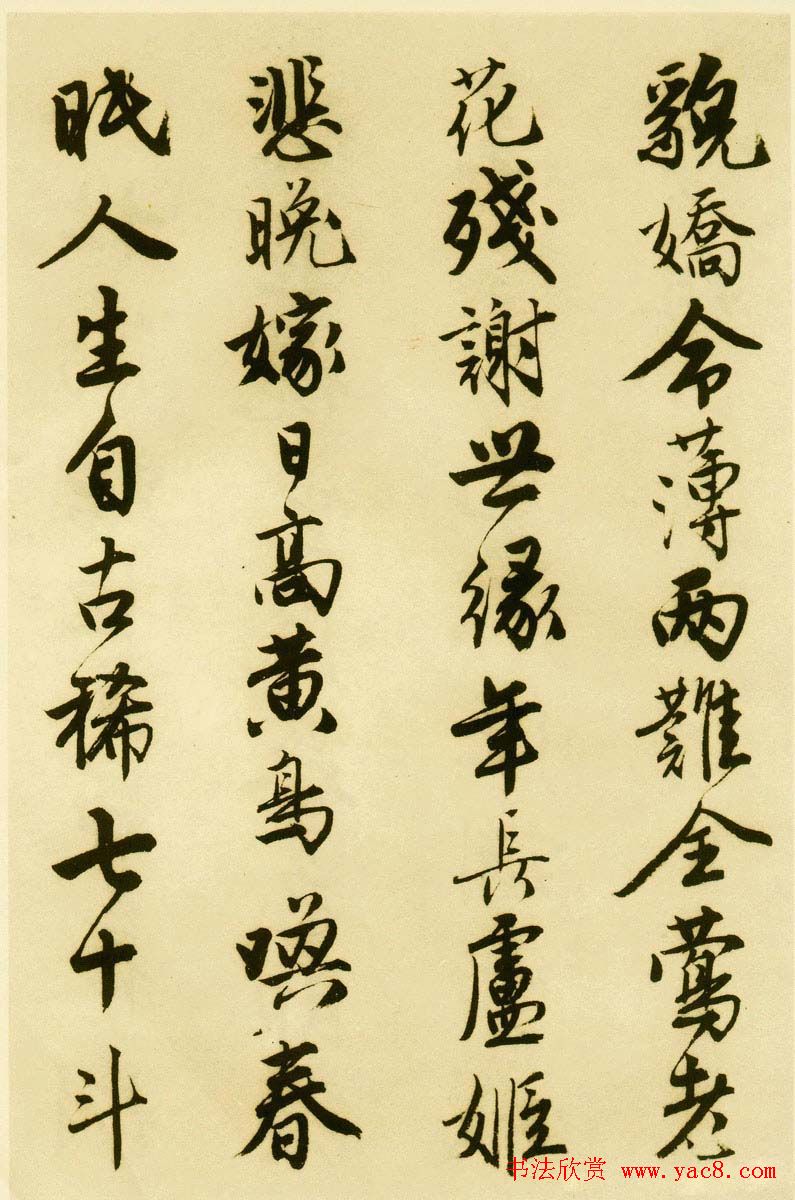 貌嬌命薄两難全鶯老
花殘謝世緣年長盧姬
悲晚嫁日高黄鳥喚春
眠人生自古稀七十斗
书法欣赏 www.yac8.com